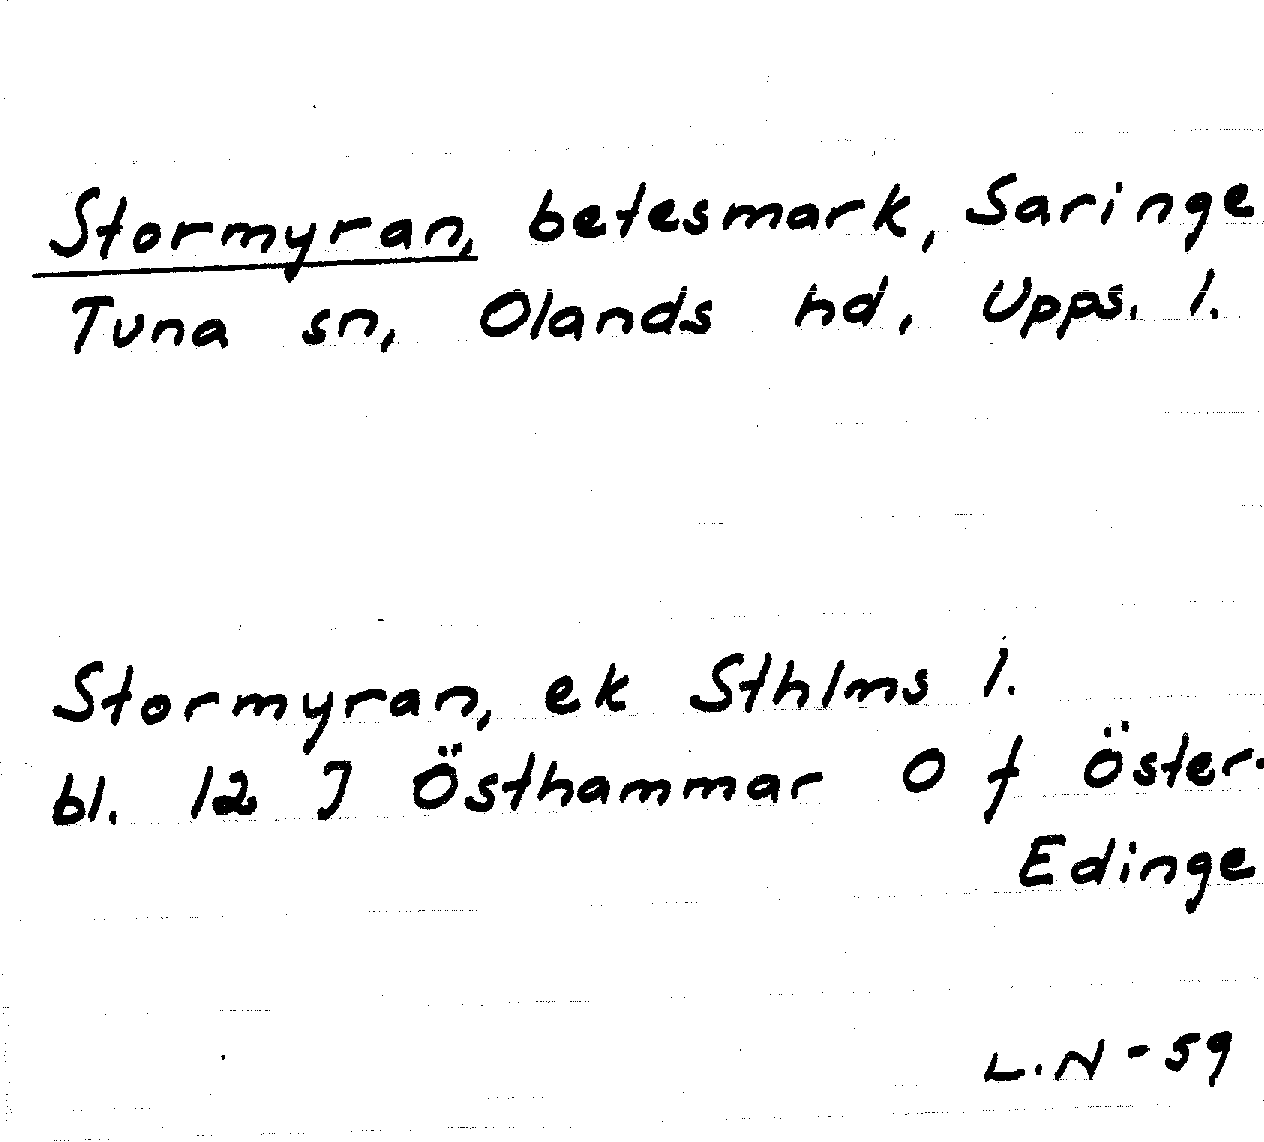 Stormyran, betesmark, Saringe
Tuna sn, Olands hd, Upps. l.
Stormyran, ek Sthlms l.
bl. 12 J Östhammar O f Öster-
Edinge
L.N - 59